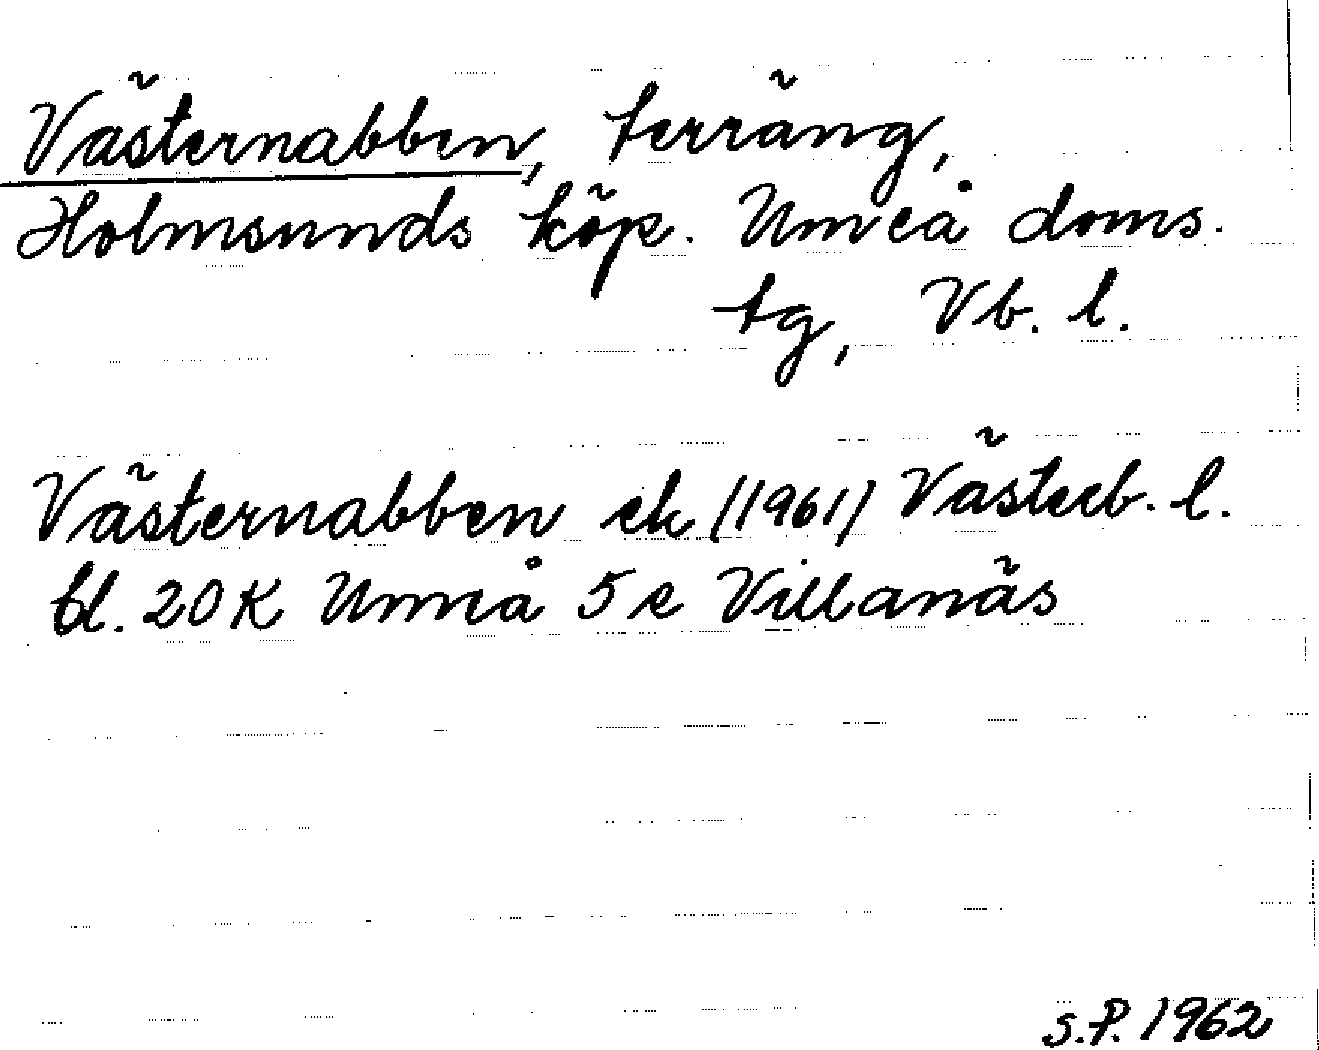 Västernabben, terräng,
Holmsunds köp. Umeå doms.
tg, Vb. l.
Västernabben ek (1961) Västerb. l.
bl. 20K Umeå 5e Villanäs
S.P. 1962